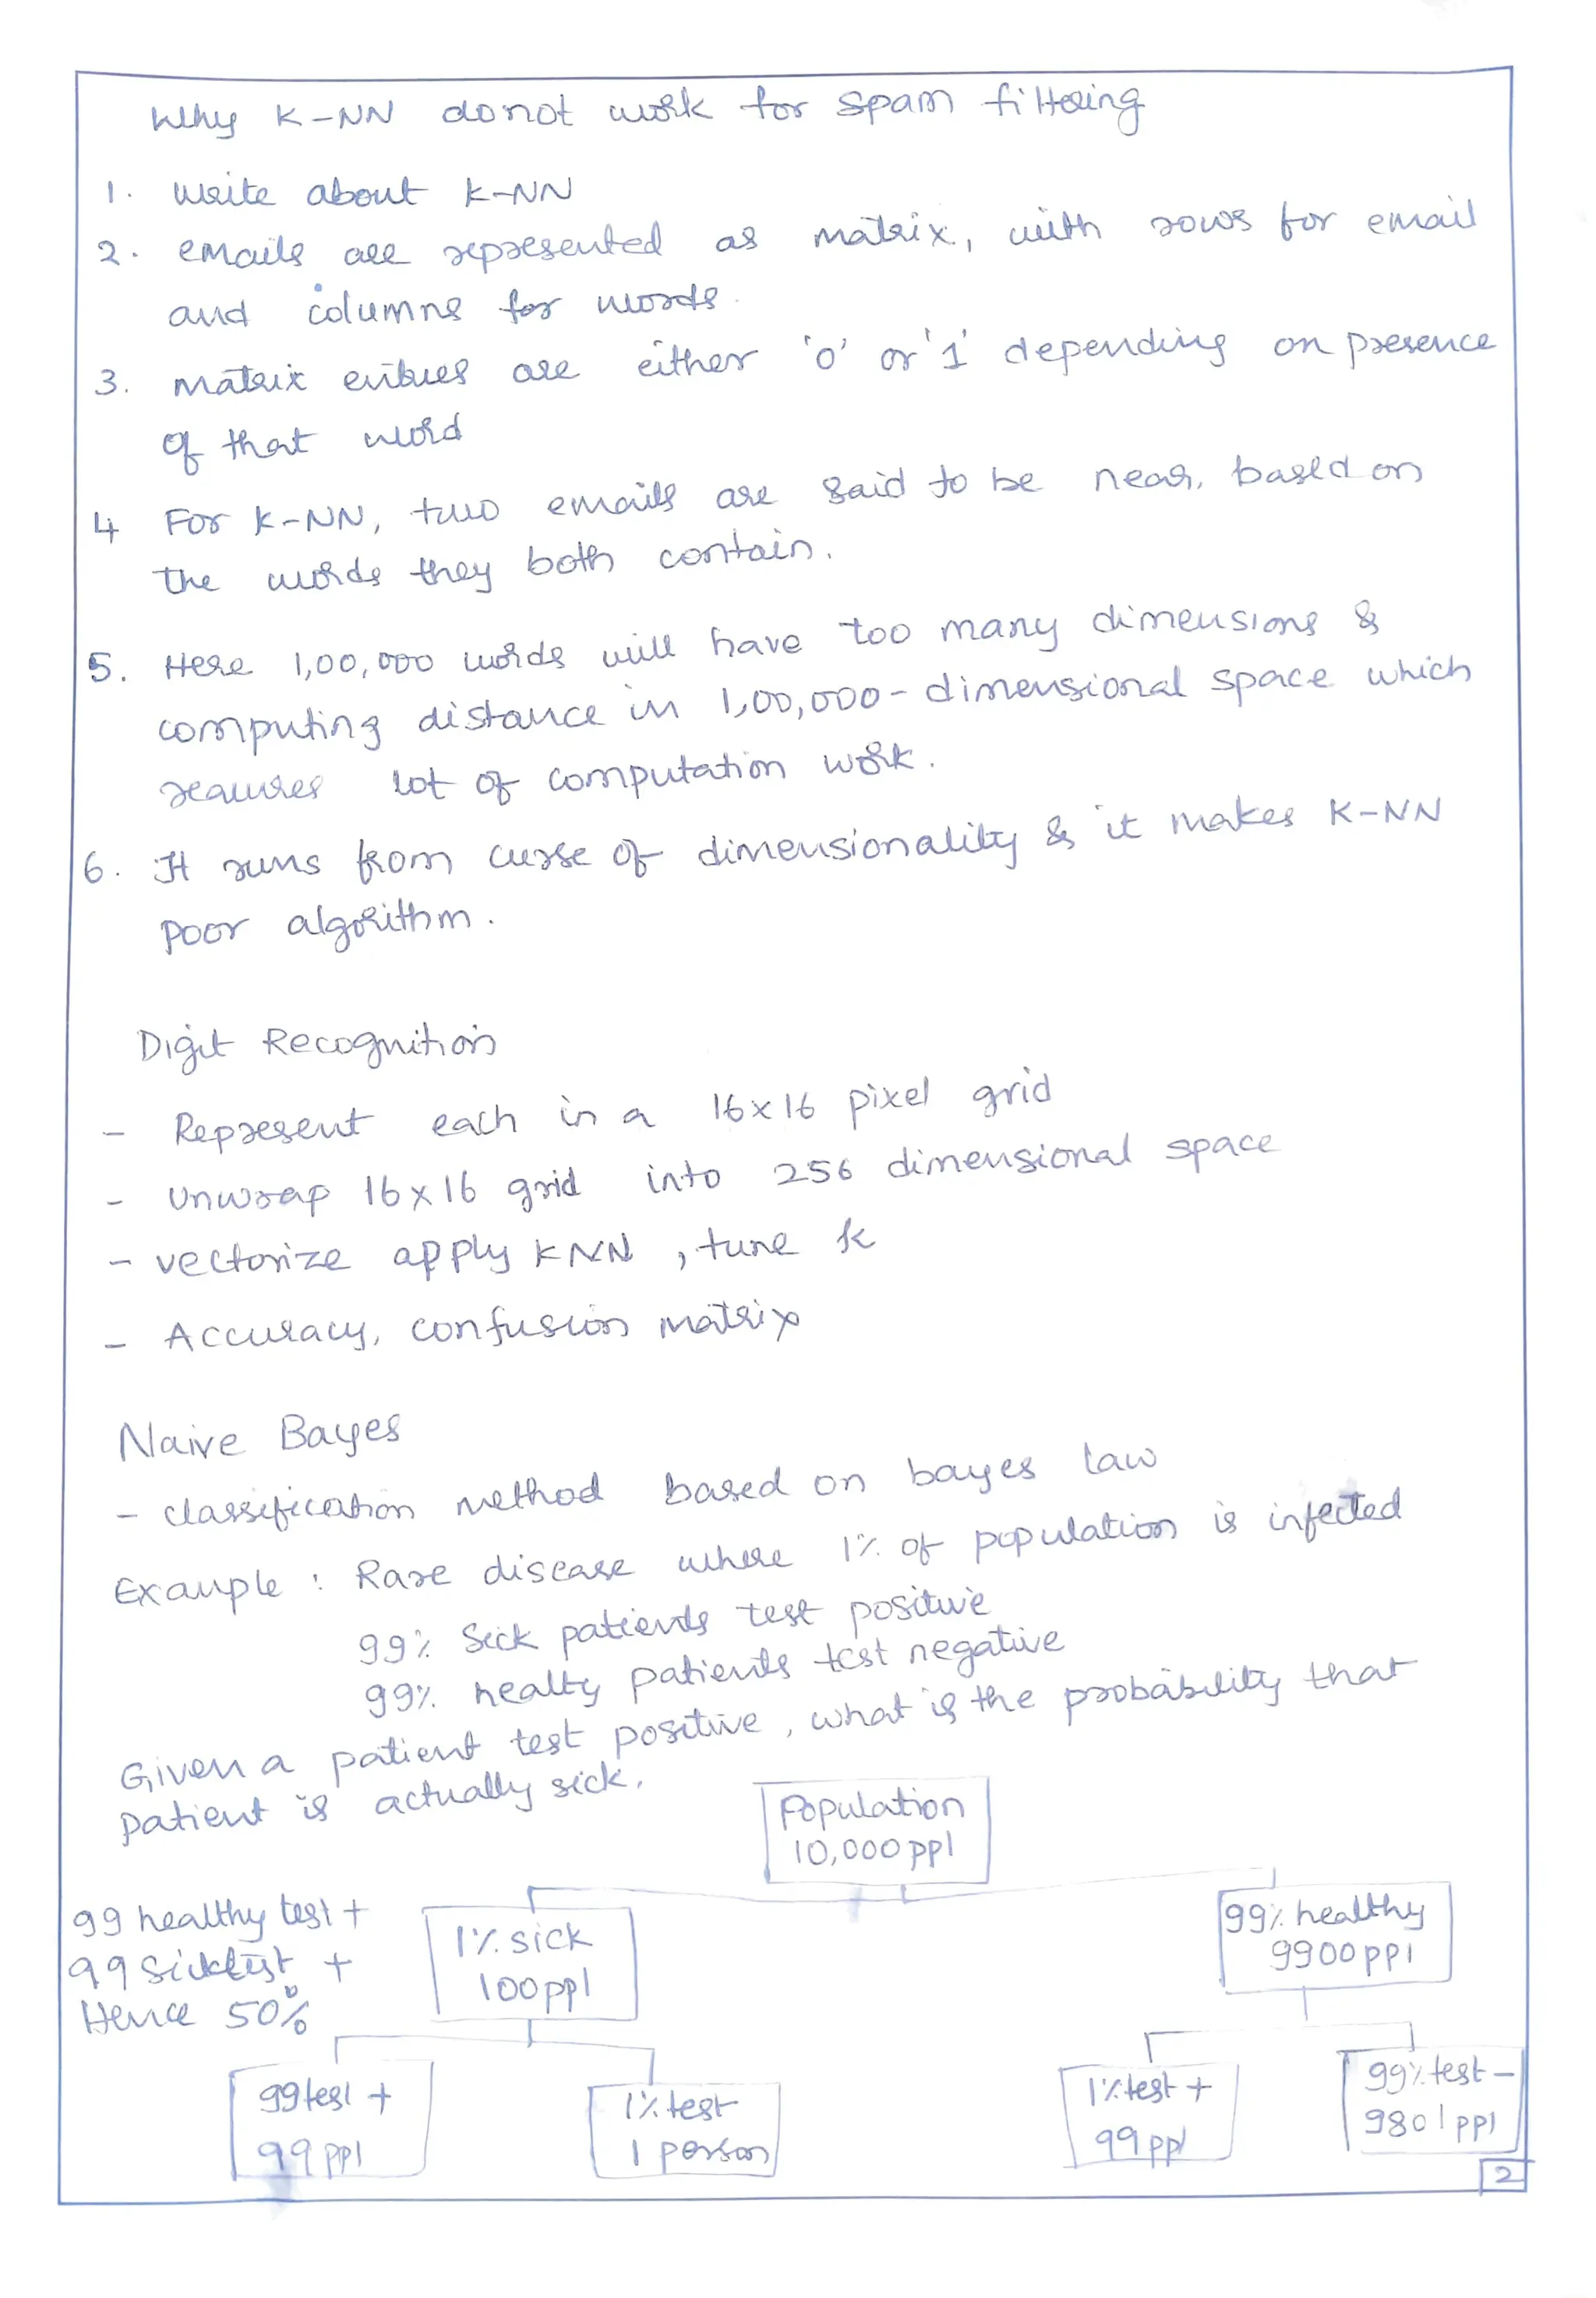 Why K-NN do not work for spam filtering
1. write about K-NN
2. emails are represented as matrix, with rows for email
and columns for words.
3. matrix entries are either '0' or '1' depending on presence
of that word
4 For K-NN, two emails are said to be near, based on
the words they both contain.
5. Here 1,00,000 words will have too many dimensions &
computing distance in 1,00,000-dimensional space which
requires lot of computation work.
6. It runs from curse of dimensionality & it makes K-NN
poor algorithm.
Digit Recognition
- Represent each in a 16x16 pixel grid
- Unwrap 16x16 grid into 256 dimensional space
- vectorize apply KNN, tune k
- Accuracy, confusion matrix
Naive Bayes
- classification method based on bayes law
Example : Rare disease where 1% of population is infected
99% Sick patients test positive
99% healty patients test negative
Given a patient test positive, what is the probability that
patient is actually sick.
Population
10,000 ppl
99 healthy test +
99 sick test +
Hence 50%
1% sick
100 ppl
99% healthy
9900 ppl
99 test +
99 ppl
1% test -
1 person
1% test +
99 ppl
99% test -
9801 ppl
2